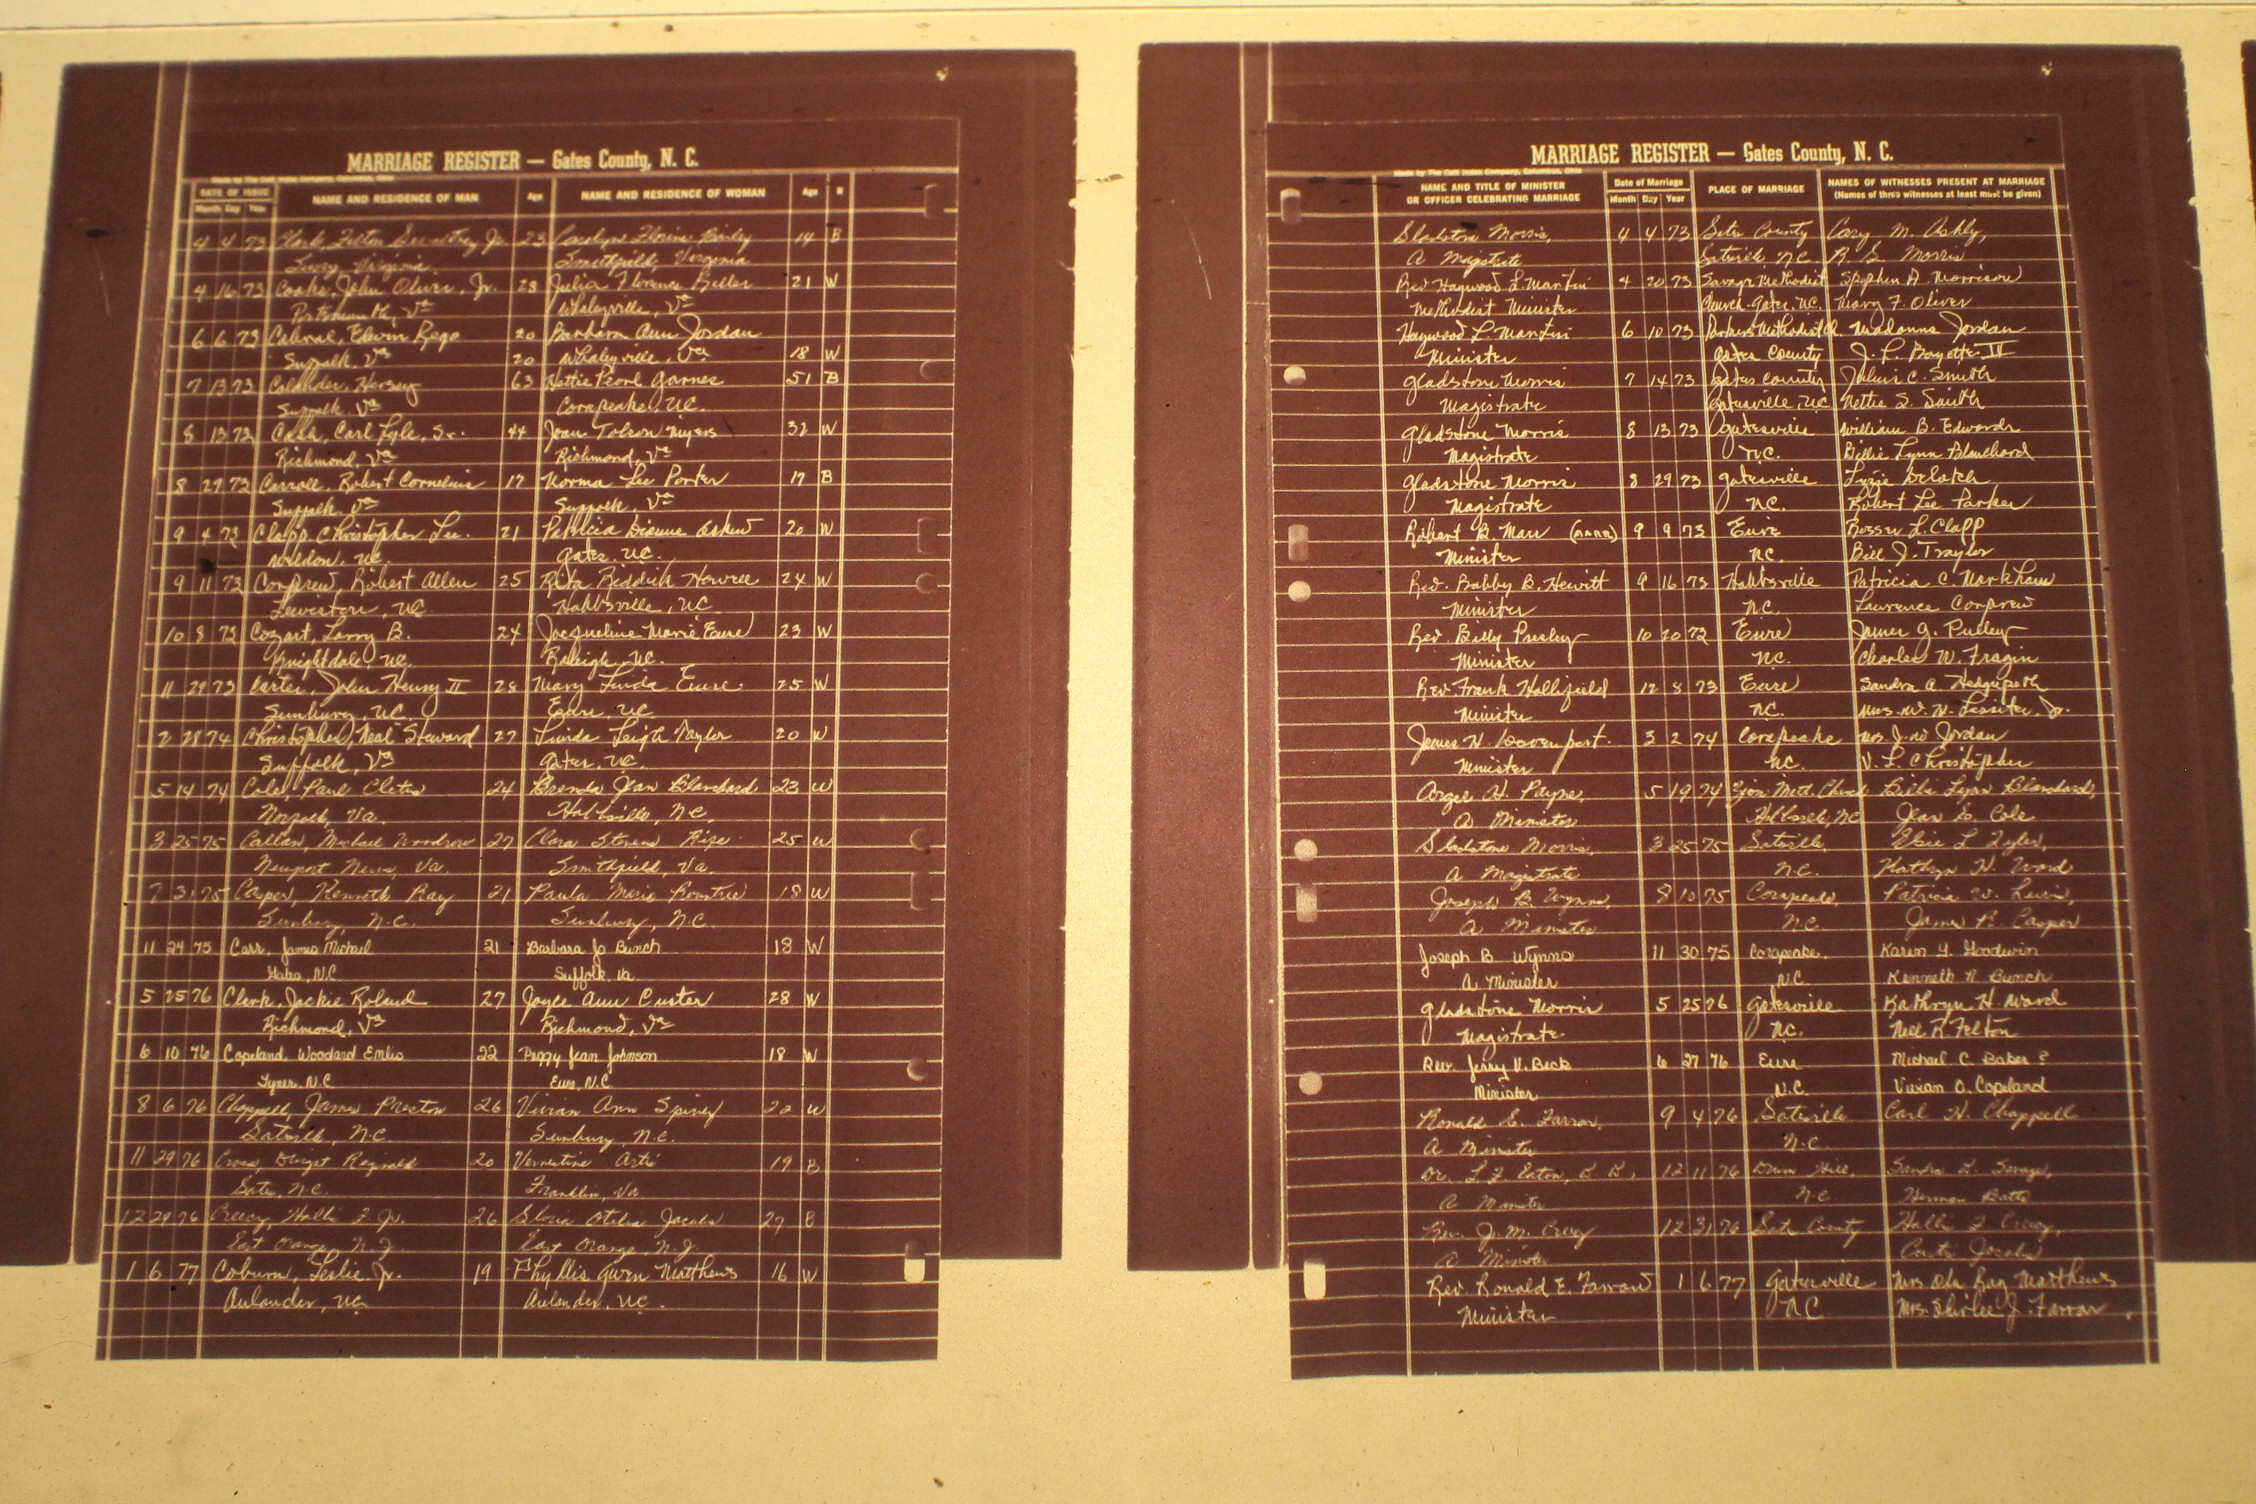 MARRIAGE REGISTER — Gates County, N. C.
DATE OF ISSUE
Month Day Year
NAME AND RESIDENCE OF MAN
Age
NAME AND RESIDENCE OF WOMAN
Age
4 4 73 Clark, Jr. 23 Carolyn Florine 14 B
Ivory, Virginia Smithfield, Virginia
4 16 73 Cooke, John Oliver, Jr. 28 Julia Florence 21 W
Portsmouth, Va Whaleyville, Va
6 6 73 Cabral, Edwin Rego 20 Barbara Ann Jordan
Suffolk, Va 20 Whaleyville, Va 18 W
7 13 73 63 Hettie Pearl Garnes 51 B
Suffolk, Va Corapeake, NC.
8 13 73 Cash, Carl Lyle, Sr. 44 Joan Tolson Myers 32 W
Richmond, Va Richmond, Va
8 29 73 Carroll, Robert Cornelius 17 Norma Lee Porter 17 B
Suffolk, Va Suffolk, Va
9 4 73 Clapp, Christopher Lee 21 Patricia Dianne Askew 20 W
Weldon, NC. Gates, NC.
9 11 73 Corprew, Robert Allen 25 Rita Riddick Howell 24 W
Lewiston, NC Hobbsville, NC
10 8 73 Cozart, Larry B. 24 Jacqueline Marie Eure 23 W
Knightdale, NC. Raleigh, NC.
11 29 73 Carter, John Henry II 28 Mary Linda Eure 25 W
Sunbury, NC. Eure, NC.
2 28 74 Christopher, Neal Steward 27 Linda Leigh Naylor 20 W
Suffolk, Va Gates, NC.
5 14 74 Cole, Paul Cletus 24 Brenda Jean Blanchard 23 W
Norfolk, Va. Hobbsville, NC.
3 25 75 Callan, Michael Woodrow 27 Clara Stevens 25 W
Newport News, Va. Smithfield, Va.
7 31 75 Casper, Kenneth Ray 21 Paula Marie Rountree 18 W
Sunbury, N.C. Sunbury, N.C.
11 24 75 Carr, James Michael 21 Barbara Jo Bunch 18 W
Gates, N.C Suffolk, Va
5 25 76 Clark, Jackie Roland 27 Joyce Ann Custer 28 W
Richmond, Va Richmond, Va
6 10 76 Copeland, Woodard Emlis 22 Peggy Jean Johnson 18 W
Tyner, N.C Eure, N.C
8 6 76 Chappell, James Preston 26 Vivian Ann Spivey 22 W
Gatesville, N.C. Sunbury, N.C.
11 29 76 Cross, Dwight Reginald 20 Vernestine Artis 19 B
Gates, N.C. Franklin, Va
12 29 76 Creecy, Hallie F. Jr. 26 Gloria Otelia Jacobs 27 B
East Orange, N.J. East Orange, N.J.
1 6 77 Coburn, Leslie Jr. 19 Phyllis Gwen Matthews 16 W
Aulander, NC. Aulander, NC.
MARRIAGE REGISTER — Gates County, N. C.
Made by The Cott Index Company, Columbus, Ohio
NAME AND TITLE OF MINISTER
OR OFFICER CELEBRATING MARRIAGE
Date of Marriage
Month Day Year
PLACE OF MARRIAGE
NAMES OF WITNESSES PRESENT AT MARRIAGE
(Names of three witnesses at least must be given)
Gladstone Morris, 4 4 73 Gates County Cary M. Ashly,
A Magistrate Gatesville NC R. S. Morris
Rev Haywood L. Martin 4 20 73 Savage Methodist Stephen A. Morrison
Methodist Minister Church-Gates, NC. Mary F. Oliver
Haywood L. Martin 6 10 73 Parkers Methodist Ch. Madonna Jordan
Minister Gates County J. F. Boyette II
Gladstone Morris 7 14 73 Gates County Julius C. Smith
Magistrate Gatesville, NC Nettie S. Smith
Gladstone Morris 8 13 73 Gatesville William B. Edwards
Magistrate NC. Billie Lynn Blanchard
Gladstone Morris 8 29 73 Gatesville Lizie DeLoatch
Magistrate NC. Robert Lee Parker
Robert B. Marr (MARR) 9 9 73 Eure Rosser L. Clapp
Minister NC. Bill J. Traylor
Rev. Bobby B. Hewitt 9 16 73 Hobbsville Patricia C. Markham
Minister NC. Lawrence Corprew
Rev. Billy Presley 10 20 73 Eure James G. Pulley
Minister NC. Charles W. Fragin
Rev Frank Hollifield 12 8 73 Eure Sandra A. Hedgepeth
Minister NC. Mrs. W. W. Lassiter, Jr.
James H. Davenport. 3 2 74 Corapeake Mrs. J. W. Jordan
Minister NC. V. F. Christopher
Argie H. Payne, 5 19 74 Zion Meth. Church Billie Lynn Blanchard,
A Minister Hobbsville, NC Jean S. Cole
Gladstone Morris, 3 25 75 Gatesville, Elsie L. Tyler,
A Magistrate N.C. Kathryn H. Ward
Joseph B. Wynns, 8 10 75 Corapeake, Patricia W. Lewis,
A Minister N.C. James R. Casper
Joseph B. Wynns 11 30 75 Corapeake, Karen Y. Goodwin
A. Minister N.C Kenneth R. Bunch
Gladstone Morris 5 25 76 Gatesville Kathryn H. Ward
Magistrate NC. Nell R Felton
Rev. Jerry V. Beck 6 27 76 Eure Michael C. Baker &
Minister N.C Vivian O. Copeland
Ronald E. Farrar, 9 4 76 Gatesville Carl H. Chappell
A Minister N.C.
Dr. L. F. Eaton, D. D., 12 11 76 Drum Hill, Sandra L. Savage,
A Minister N.C. Herman Batts
Rev. J. M. Creecy 12 31 76 Gates County Hallie F. Creecy,
A Minister Jacobs
Rev. Ronald E. Farrar 1 6 77 Gatesville Mrs Ola Ray Matthews
Minister NC. Mrs. Shirlee J. Farrar